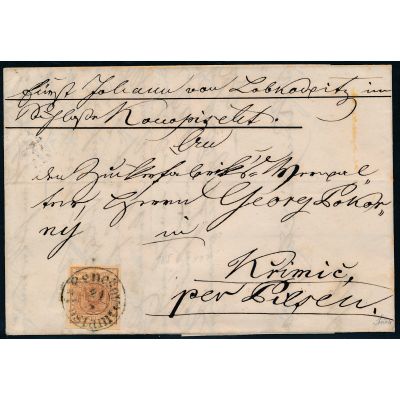 Fürst Johann von Lobkowitz im
Schloße Konopischt.
An
den Zuckerfabriks Verwal
ter, Herrn Georg Pokor
ny in
Křimić,
per Pilsen.